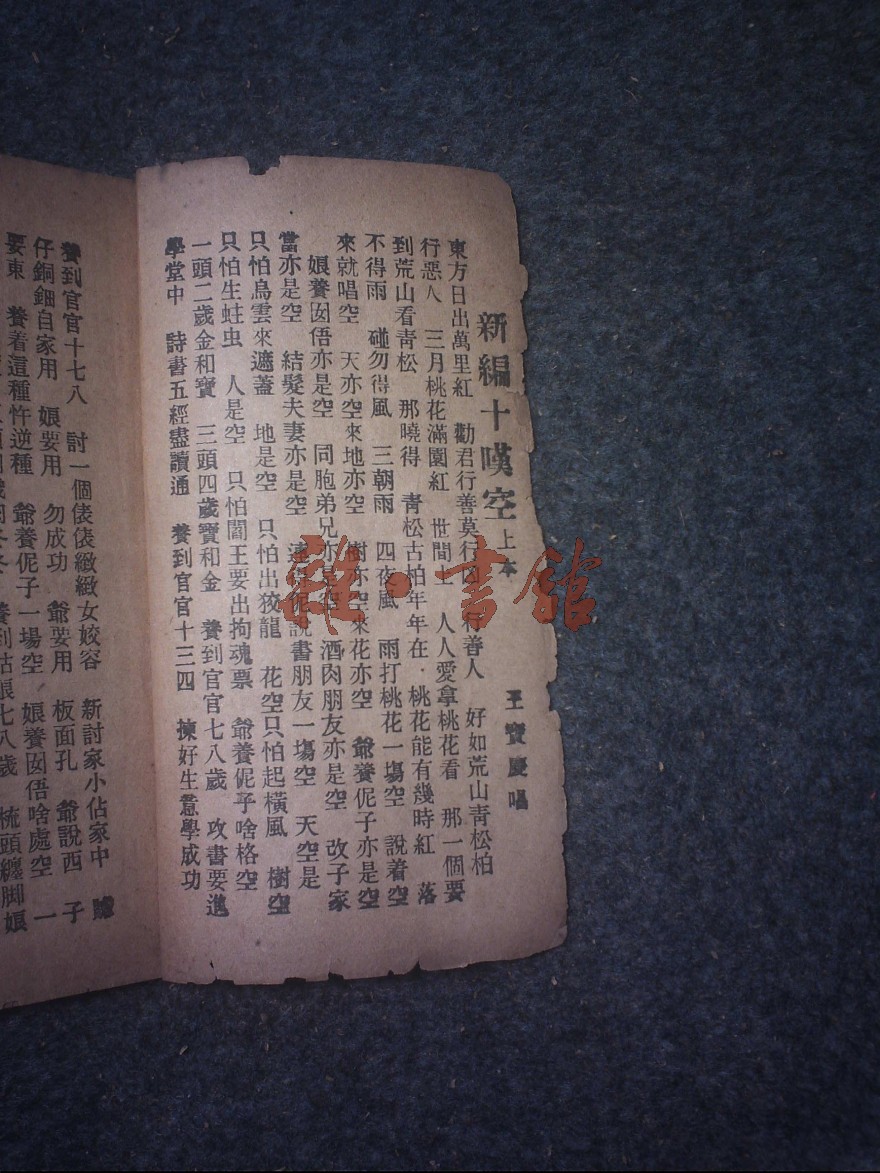 新編十嘆空 上本
王寶慶唱
東方日出萬里紅 勸君行善莫行凶 行善人 好如荒山青松柏
行惡人 三月桃花滿園紅 世間上 人人愛拿桃花看 那一個要
到荒山看青松 那曉得 青松古柏年年在 桃花能有幾時紅 落
不得雨 碰勿得風 三朝雨 四夜風 雨打桃花一塲空 説着空
來就唱空 天亦空來地亦空 樹亦空來花亦空 爺養伲子亦是空
娘養囡㑚亦是空 同胞弟兄亦是空 酒肉朋友亦是空 改子家
當亦是空 結髮夫妻亦是空 連伲説書朋友一塲空 天空是
只怕烏雲來遮蓋 地是空 只怕出狡龍 花空只怕起橫風 樹空
只怕生蛀虫 人是空 只怕閻王要出拘魂票 爺養伲子啥格空
一頭二歲金和寶 三頭四歲寶和金 養到官官七八歲 攻書要進
學堂中 詩書五經盡讀通 養到官官十三四 揀好生意學成功
養到官官十七八 討一個俵俵緻緻女姣容 新討家小佔家中
仔銅鈿自家用 娘要用 勿成功 爺要用 板面孔 爺說西 子
要東 養着這種忤逆種 爺養伲子一場空 娘養囡㑚啥處空 一
養到姑娘七八歲 梳頭纏脚娘
雜·書館